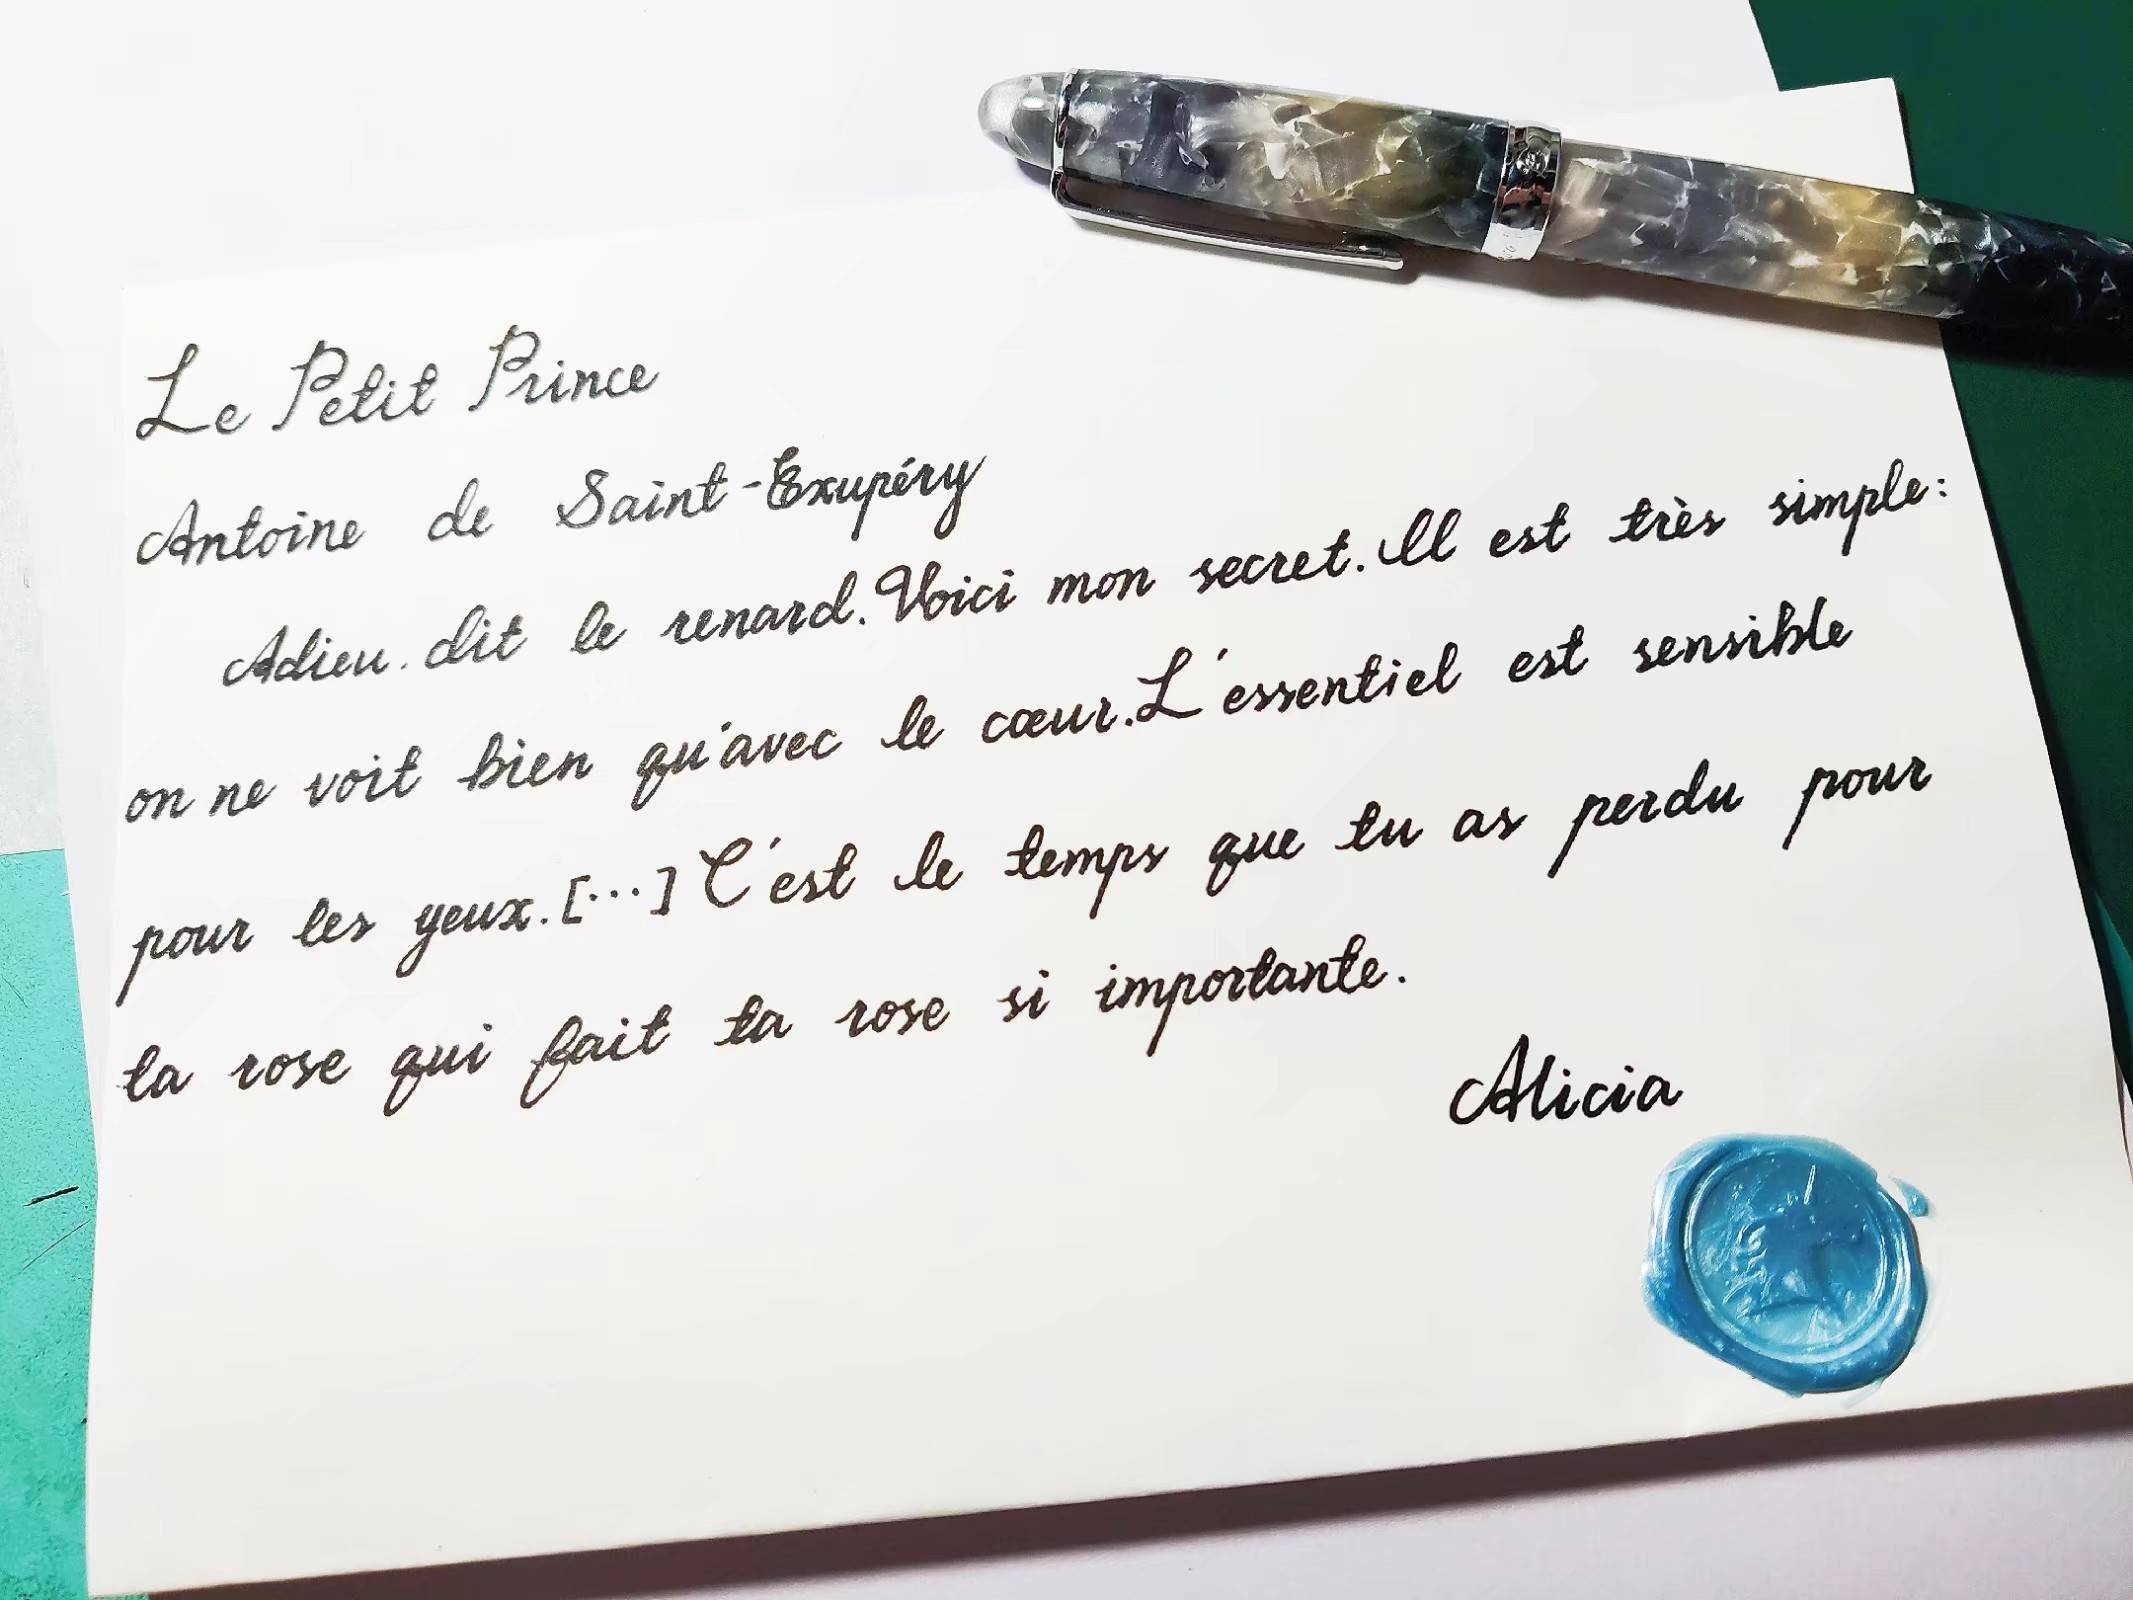 Le Petit Prince
Antoine de Saint-Exupéry
Adieu. dit le renard. Voici mon secret. Il est très simple:
on ne voit bien qu'avec le cœur. L'essentiel est sensible
pour les yeux. [...] C'est le temps que tu as perdu pour
ta rose qui fait ta rose si importante.
Alicia